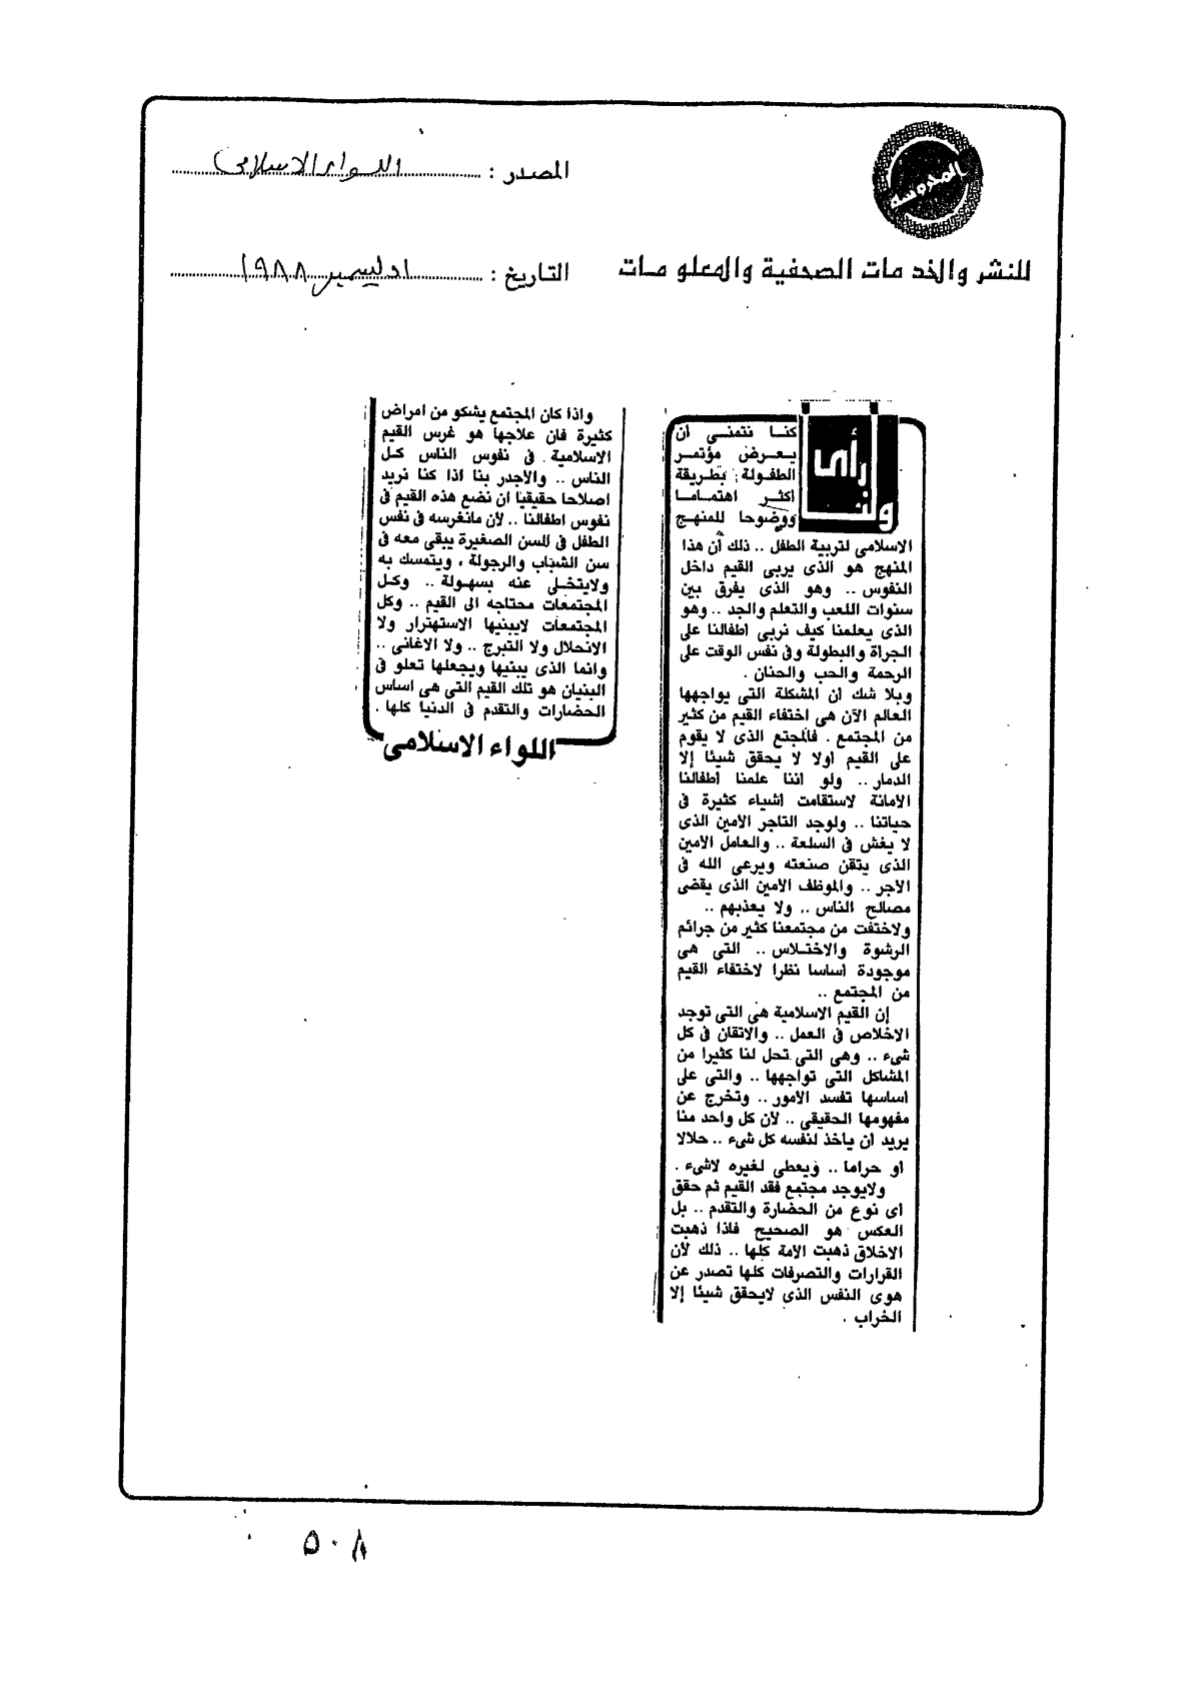 المصدر : اللواء الاسلامى
للنشر والخد مات الصحفية والمعلو مات
التاريخ : ١ ديسمبر ١٩٨٨
رأى
ولنا
كنا نتمنى أن
يعرض مؤتمر
الطفولة ; بطريقة
اكثر اهتماما
ووضوحا للمنهج
الاسلامى لتربية الطفل .. ذلك أن هذا
المنهج هو الذى يربى القيم داخل
النفوس .. وهو الذى يفرق بين
سنوات اللعب والتعلم والجد .. وهو
الذى يعلمنا كيف نربى اطفالنا على
الجراة والبطولة وفى نفس الوقت على
الرحمة والحب والحنان .
وبلا شك ان المشكلة التى يواجهها
العالم الآن هى اختفاء القيم من كثير
من المجتمع . فالمجتع الذى لا يقوم
على القيم أولا لا يحقق شيئا إلا
الدمار .. ولو اننا علمنا أطفالنا
الأمانة لاستقامت أشياء كثيرة فى
حياتنا .. ولوجد التاجر الأمين الذى
لا يغش فى السلعة .. والعامل الأمين
الذى يتقن صنعته ويرعى الله فى
الأجر .. والموظف الأمين الذى يقضى
مصالح الناس .. ولا يعذبهم ..
ولاختفت من مجتمعنا كثير من جرائم
الرشوة والاختلاس .. التى هى
موجودة أساسا نظرا لاختفاء القيم
من المجتمع ..
إن القيم الاسلامية هى التى توجد
الاخلاص فى العمل .. والاتقان فى كل
شىء .. وهى التى تحل لنا كثيرا من
المشاكل التى تواجهها .. والتى على
اساسها تفسد الأمور .. وتخرج عن
مفهومها الحقيقى .. لأن كل واحد منا
يريد ان ياخذ لنفسه كل شىء .. حلالا
او حراما .. ويعطى لغيره لاشىء .
ولايوجد مجتمع فقد القيم ثم حقق
اى نوع من الحضارة والتقدم .. بل
العكس هو الصحيح فاذا ذهبت
الاخلاق ذهبت الأمة كلها .. ذلك لأن
القرارات والتصرفات كلها تصدر عن
هوى النفس الذى لايحقق شيئا إلا
الخراب .
واذا كان المجتمع يشكو من امراض
كثيرة فان علاجها هو غرس القيم
الاسلامية فى نفوس الناس كل
الناس .. والأجدر بنا اذا كنا نريد
اصلاحا حقيقيا ان نضع هذه القيم فى
نفوس اطفالنا .. لأن مانغرسه فى نفس
الطفل فى السن الصغيرة يبقى معه فى
سن الشباب والرجولة ، ويتمسك به
ولايتخلى عنه بسهولة .. وكل
المجتمعات محتاجه الى القيم .. وكل
المجتمعات لايبنيها الاستهترار ولا
الانحلال ولا التبرج .. ولا الاغانى ..
وانما الذى يبنيها ويجعلها تعلو فى
البنيان هو تلك القيم التى هى اساس
الحضارات والتقدم فى الدنيا كلها .
اللواء الاسلامى
٥٠٨